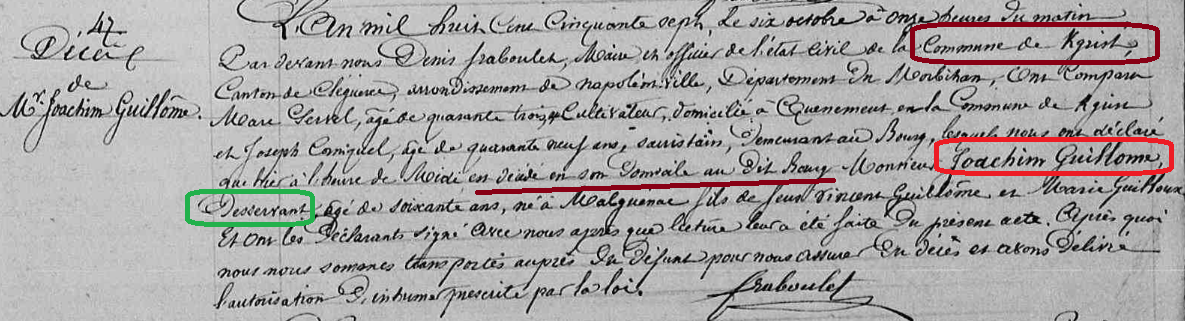 47
Décès
de
Mr. Joachim Guillôme.
L'An mil huit cent cinquante sept, le six octobre à onze heures du matin
Par devant nous Denis fraboulet, Maire et officier de l'état civil de la Commune de Kgrist,
Canton de Cléguerec, arrondissement de napoléonville, Département du Morbihan, Ont comparu
Marc Servel, âgé de quarante trois, Cultivateur, domicilié à Quenement, en la Commune de Kgrist
et Joseph Comiquel, âgé de quarante neuf ans, sacristain, demeurant au Bourg, lesquels nous ont déclaré
que hier à l'heure de Midi est décédé en son Domicile au Dit Bourg Monsieur Joachim Guillôme,
Desservant, âgé de soixante ans, né à Malguenac fils de feus vincent Guillôme et Marie Guilloux
Et ont les Déclarants signé avec nous après que lecture leur a été faite Du présent acte. Après quoi
nous nous sommes transportés auprès Du défunt pour nous assurer Du décès et avons Délivré
l'autorisation D'inhumer prescrite par la loi. fraboulet